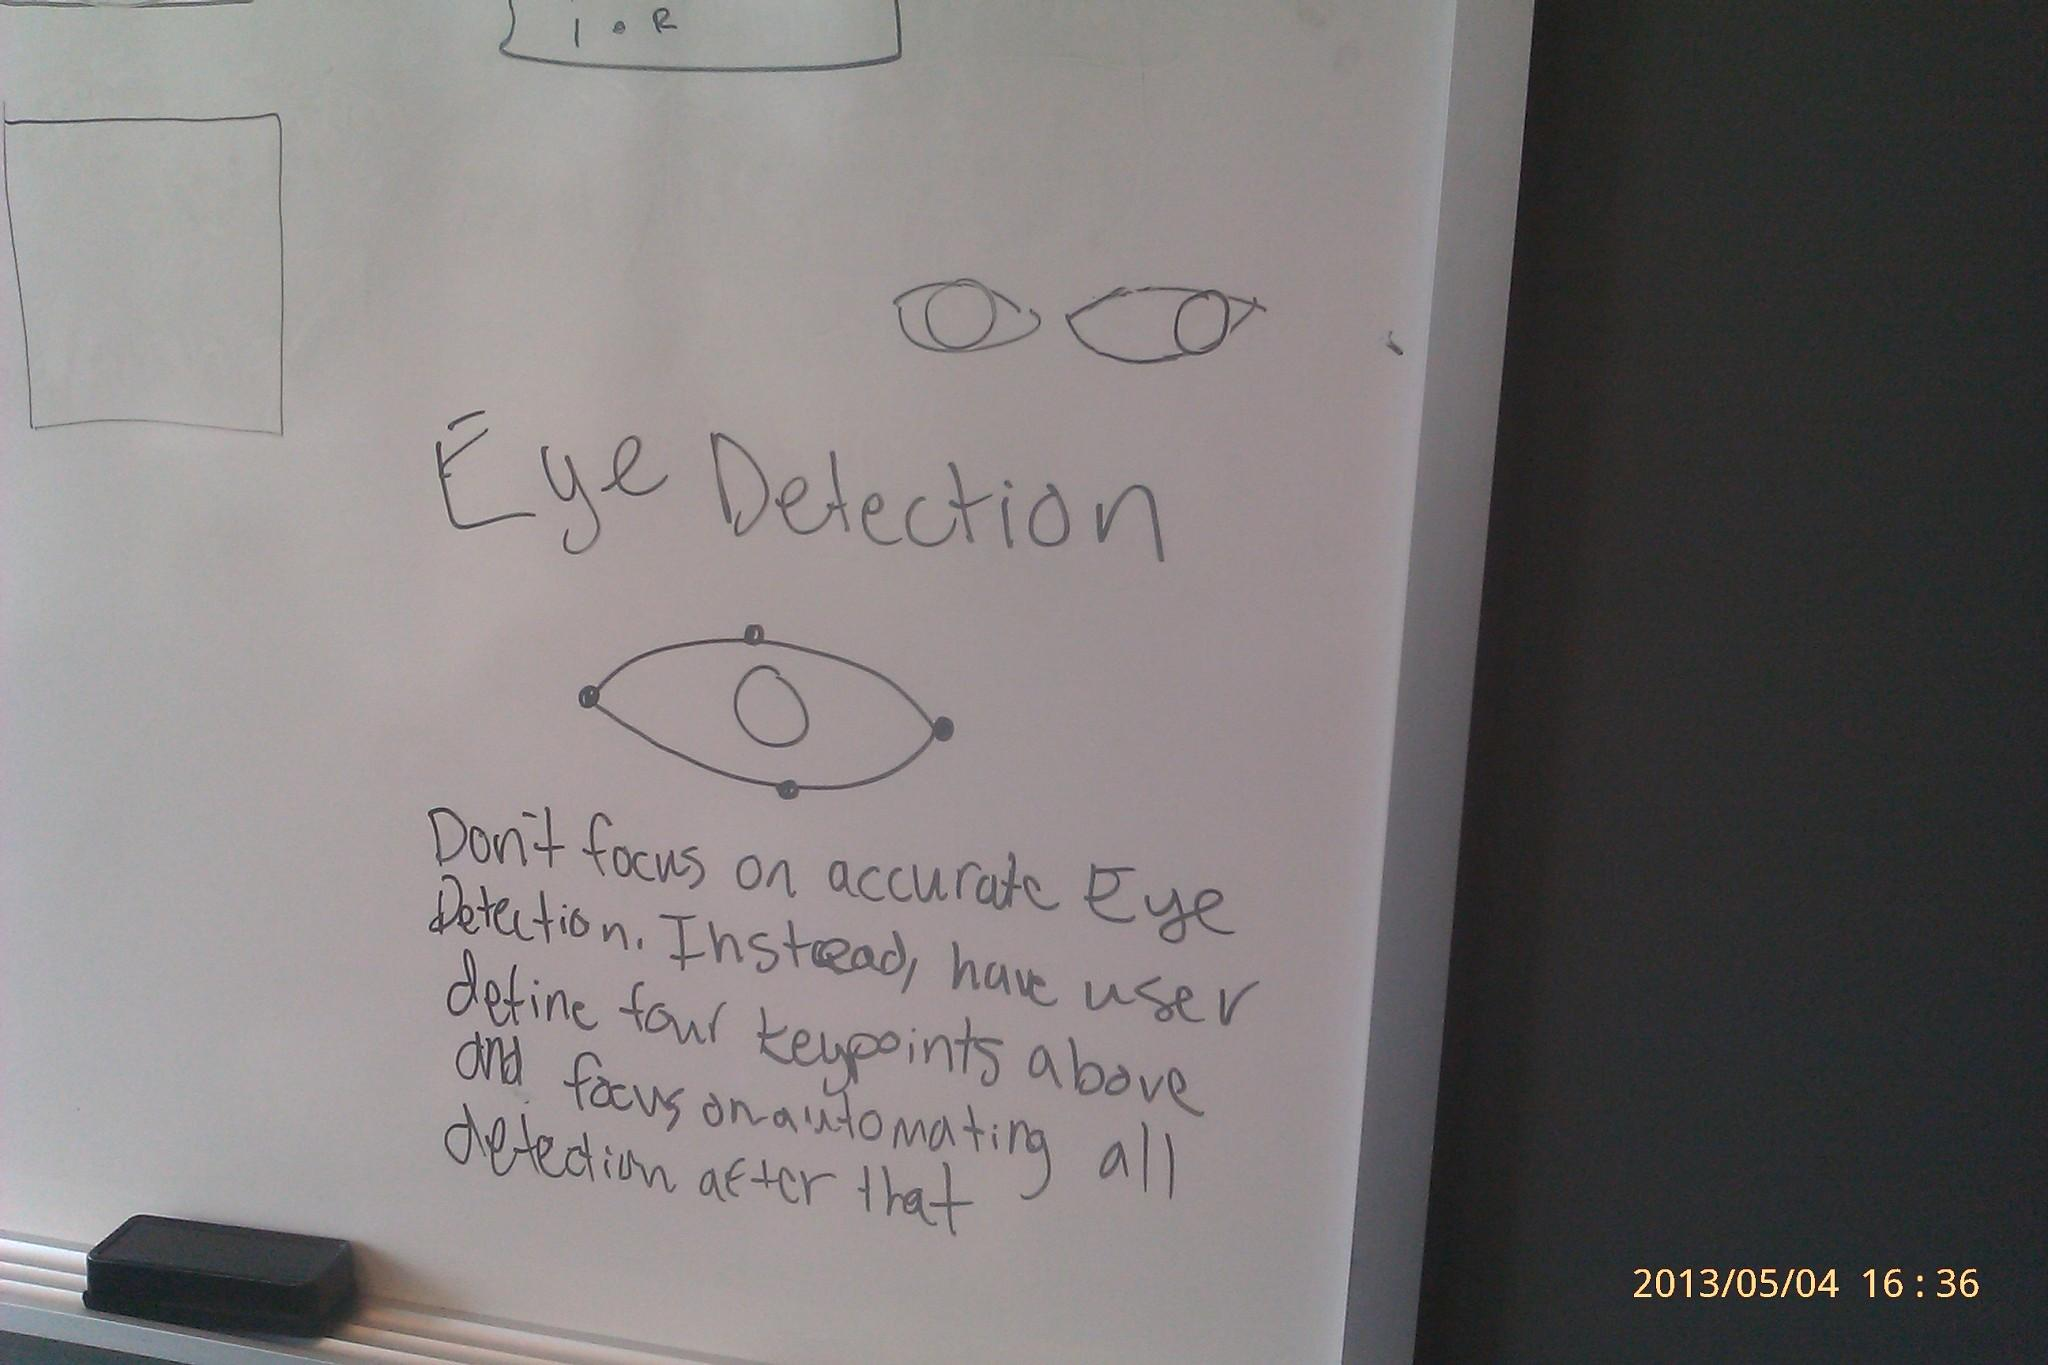 1 . R
Eye Detection
Don't focus on accurate Eye
Detection. Instead, have user
define four keypoints above
and focus on automating all
detection after that
2013/05/04 16:36